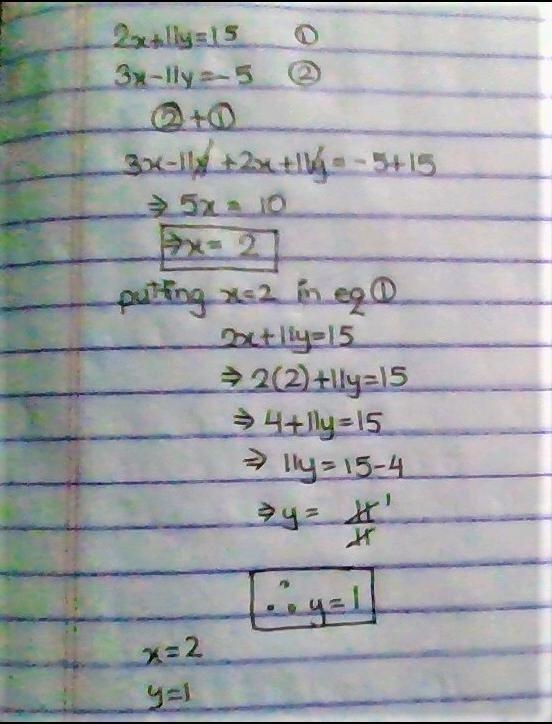 2x+11y=15 ①
3x-11y=-5 ②
②+①
3x-11y+2x+11y=-5+15
⇒ 5x = 10
⇒x= 2
putting x=2 in eq ①
2x+11y=15
⇒ 2(2)+11y=15
⇒ 4+11y=15
⇒ 11y=15-4
⇒y= 11 1
11
∴ y=1
x=2
y=1